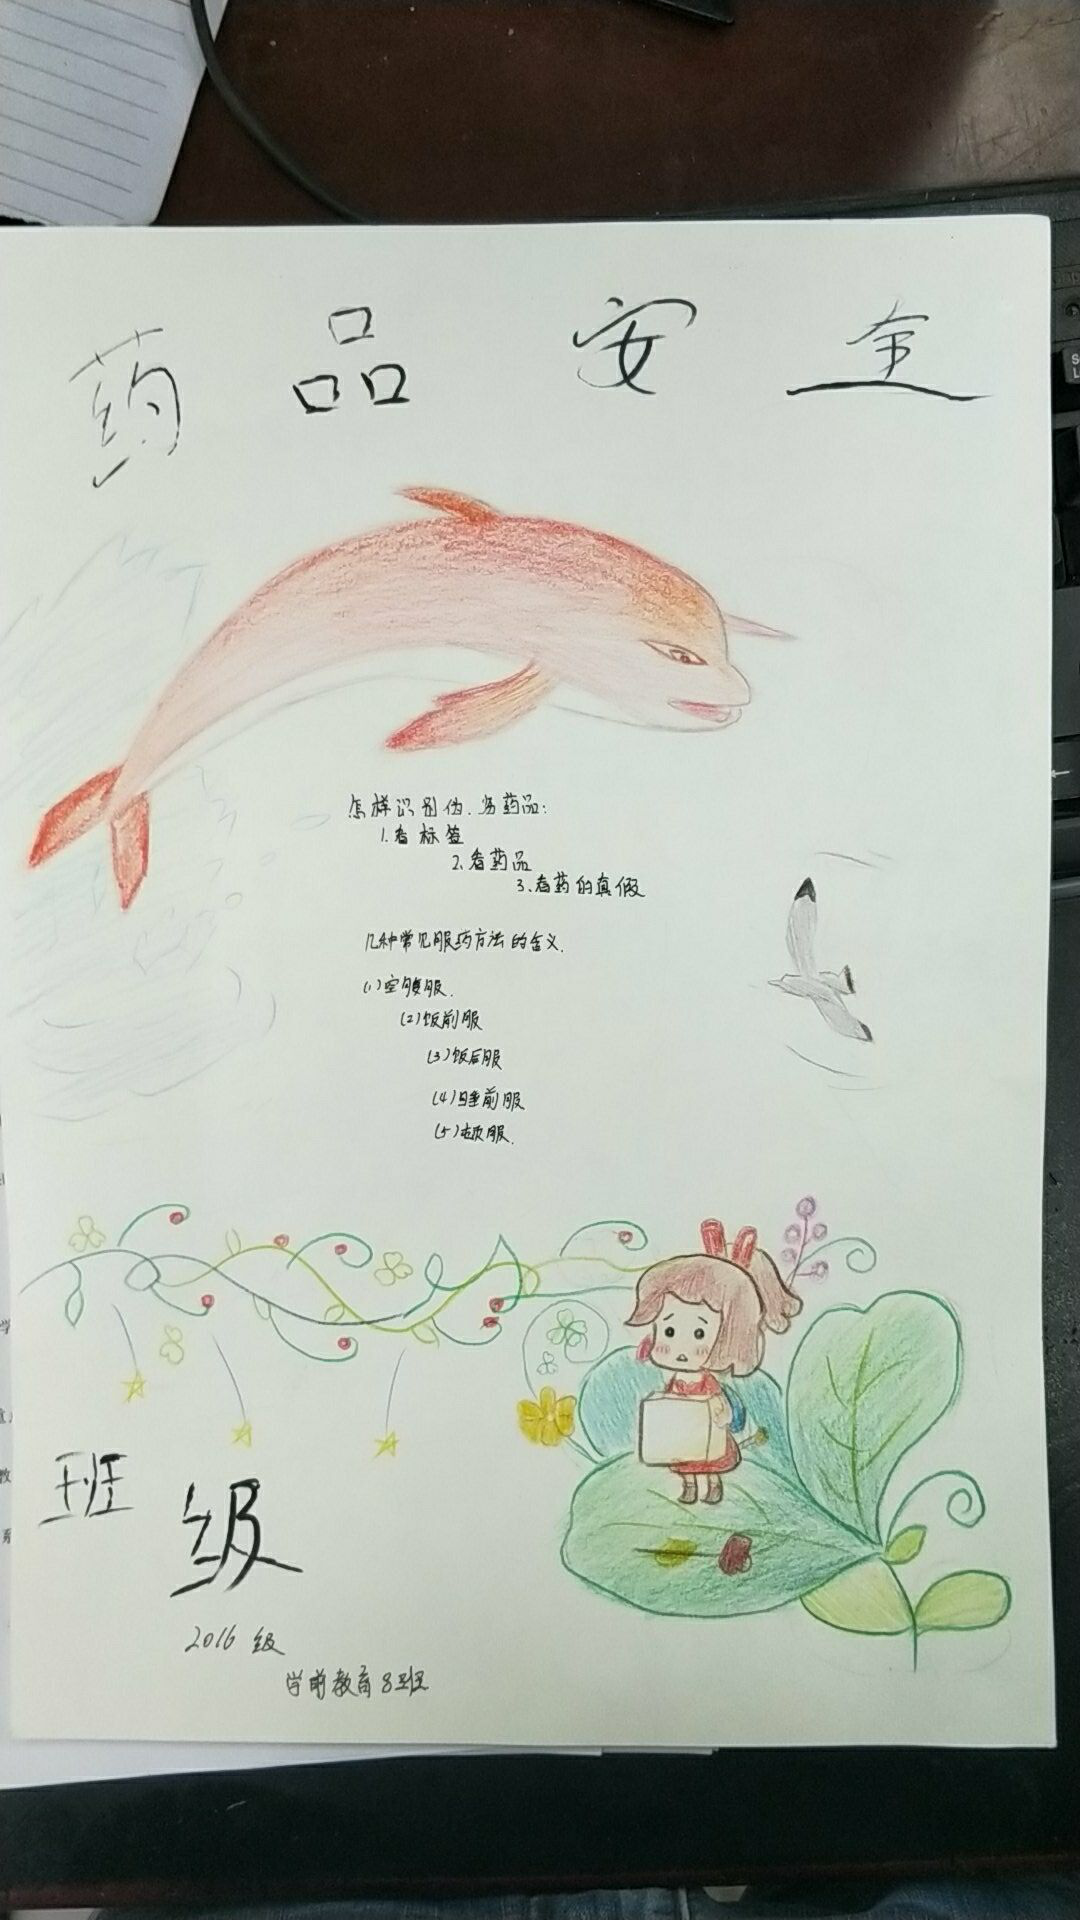 药品安全
怎样识别伪、劣药品：
1.看标签
2.看药品
3.看药的真假
几种常见服药方法的含义.
(1)空腹服.
(2)饭前服
(3)饭后服
(4)睡前服
(5)顿服.
班级
2016 级
学前教育8班